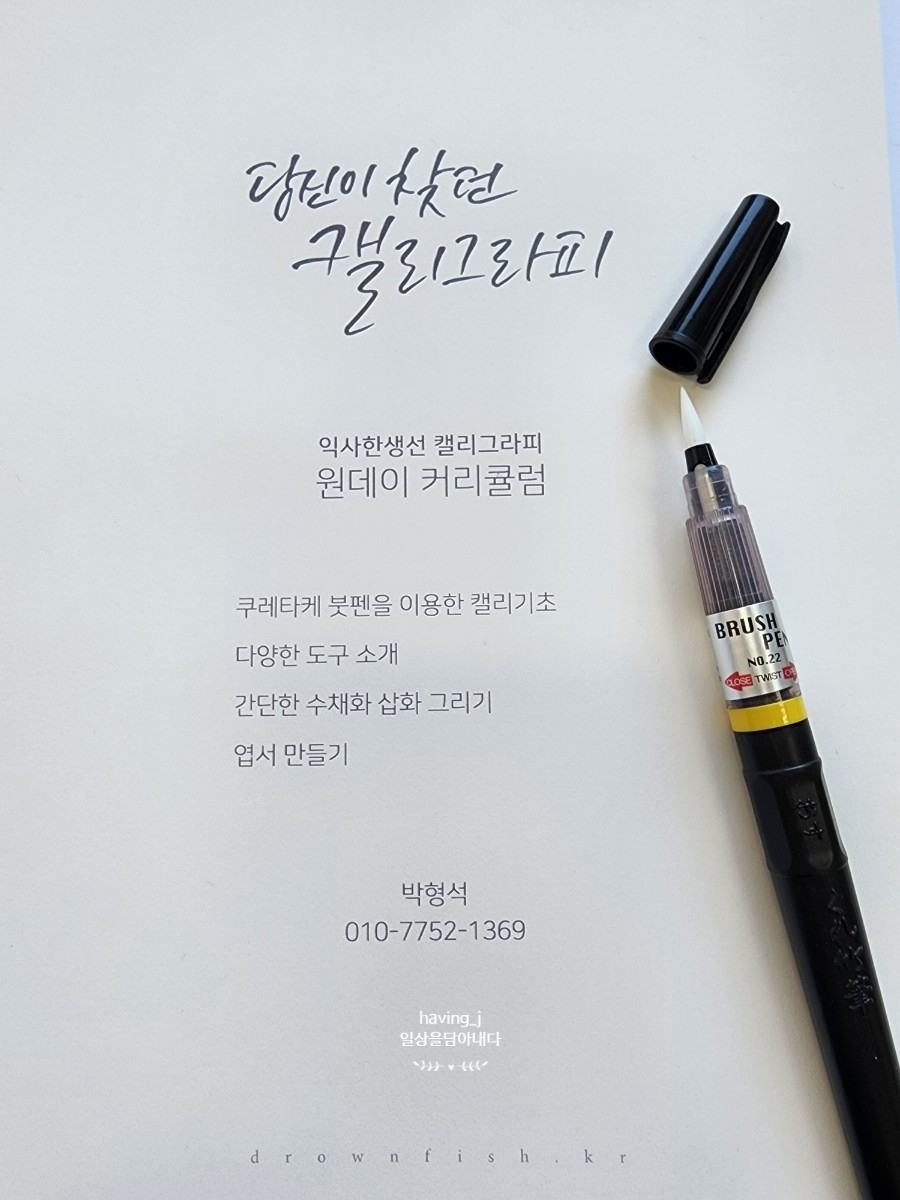 당신이 찾던
캘리그라피
익사한생선 캘리그라피
원데이 커리큘럼
쿠레타케 붓펜을 이용한 캘리기초
다양한 도구 소개
간단한 수채화 삽화 그리기
엽서 만들기
박형석
010-7752-1369
having_j
일상을담아내다
drownfish.kr
BRUSH
PEN
NO.22
CLOSE TWIST